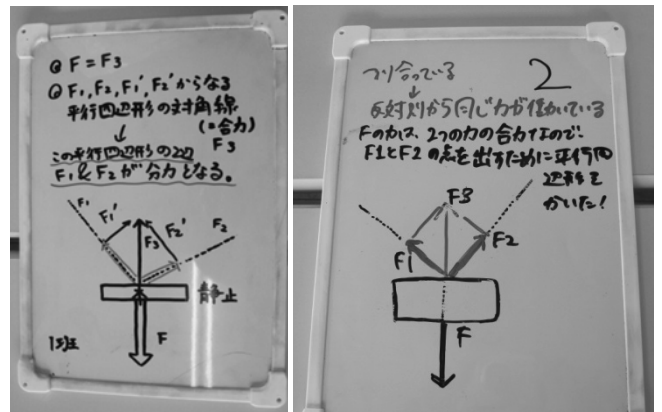 ◎ F = F3
◎ F1, F2, F1', F2' からなる
平行四辺形の対角線
(=合力)
F3
↓
この平行四辺形の2辺
F1 & F2 が分力となる。
F1
F1'
F3
F2'
F2
静止
F
1班
2
つり合っている
↓
反対側から同じ力が働いている
Fの力は、2つの力の合力なので、
F1とF2の点を出すために平行四
辺形を
かいた!
F3
F1
F2
F